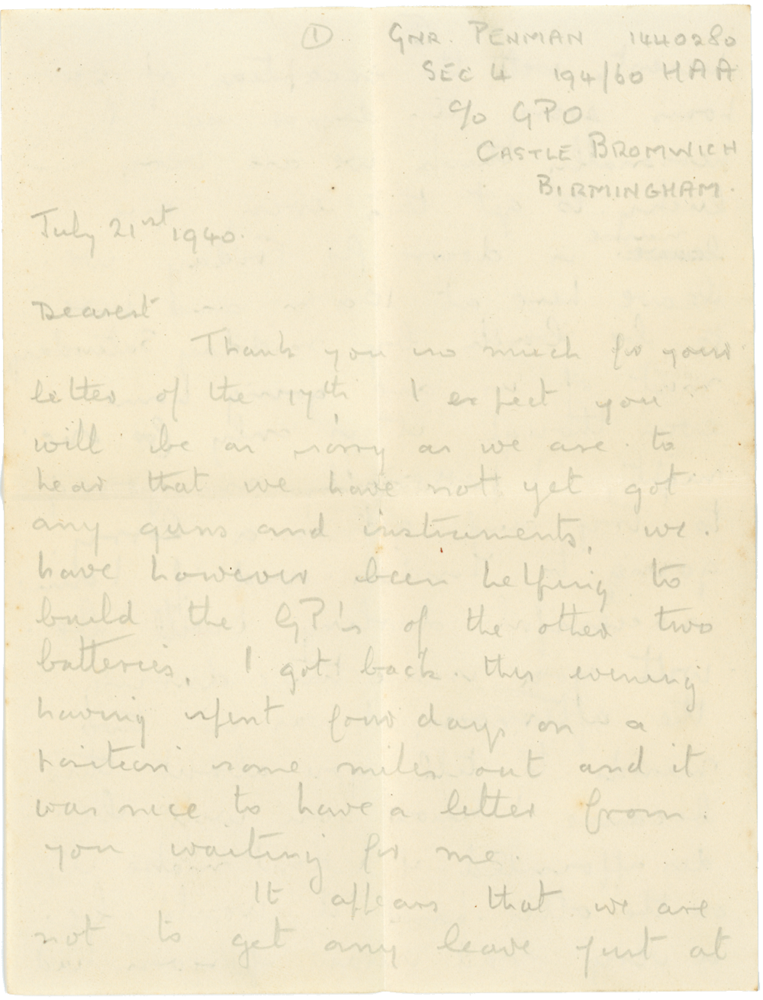 ① GNR. PENMAN 1440280
SEC 4 194/60 HAA
c/o GPO
CASTLE BROMWICH
BIRMINGHAM.
July 21st 1940.
Dearest
Thank you so much for your
letter of the 17th I expect you
will be as sorry as we are to
hear that we have not yet got
any guns and instruments, we
have however been helping to
build the GP's of the other two
batteries, I got back this evening
having spent four days on a
position some miles out and it
was nice to have a letter from
you waiting for me.
It appears that we are
not to get any leave just at